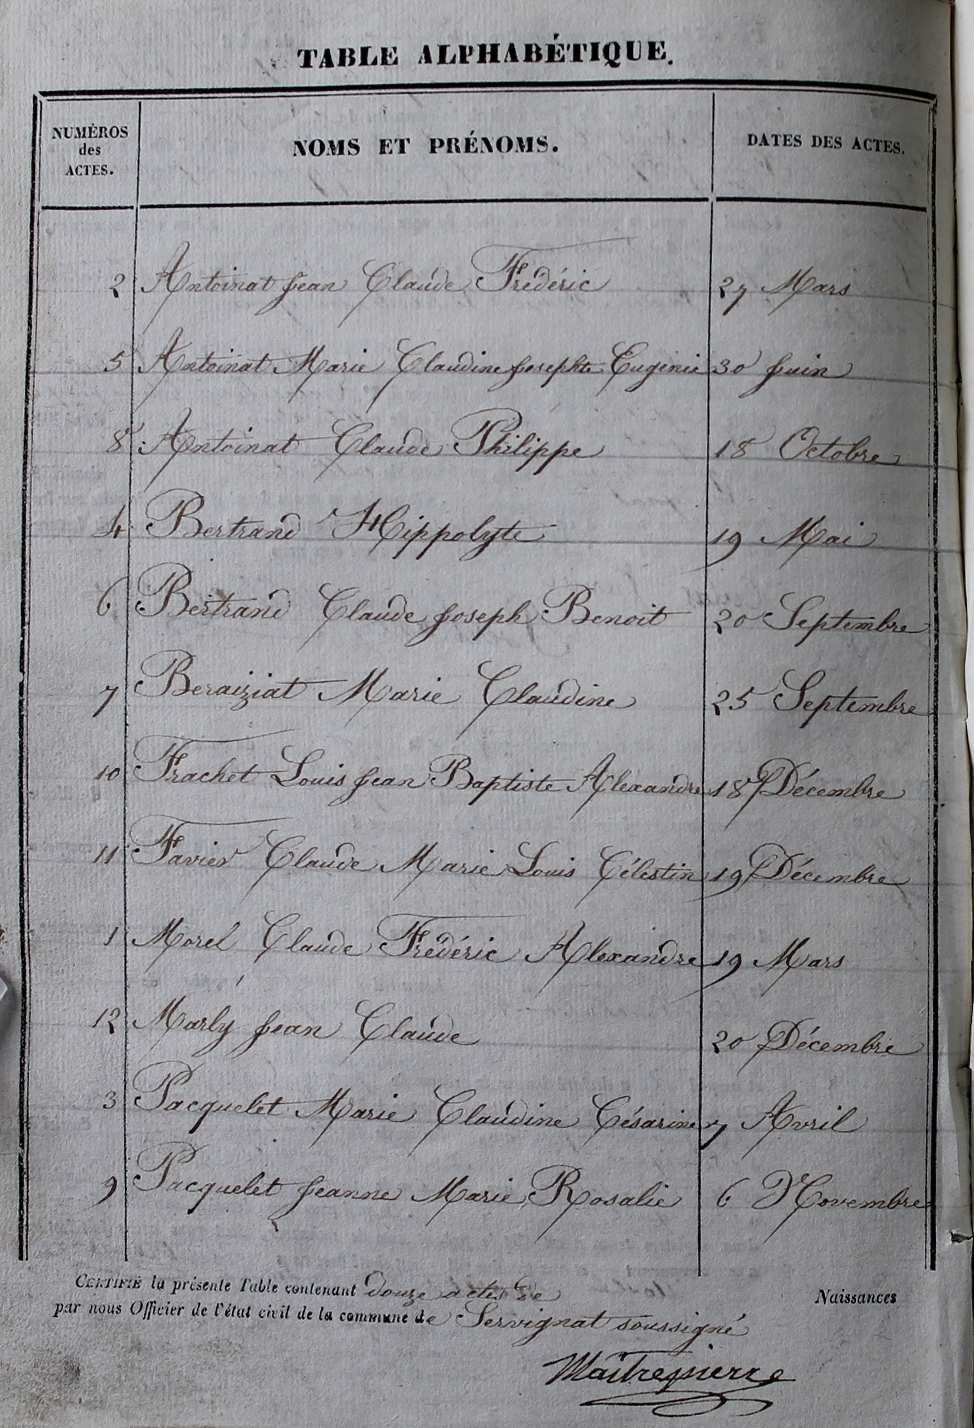 TABLE ALPHABÉTIQUE.
NUMÉROS des ACTES. NOMS ET PRÉNOMS. DATES DES ACTES.
2 Antoinat Jean Claude Frédéric 27 Mars
5 Antoinat Marie Claudine Josephte Eugenie 30 Juin
8 Antoinat Claude Philippe 18 Octobre
4 Bertrand Hippolyte 19 Mai
6 Bertrand Claude Joseph Benoit 20 Septembre
7 Beraiziat Marie Claudine 25 Septembre
10 Frachet Louis Jean Baptiste Alexandre 18 Décembre
11 Favier Claude Marie Louis Célestin 19 Décembre
1 Morel Claude Frédéric Alexandre 19 Mars
12 Marly Jean Claude 20 Décembre
3 Pacquelet Marie Claudine Césarine 7 Avril
9 Pacquelet Jeanne Marie Rosalie 6 Novembre
CERTIFIÉ la présente Table contenant douze actes de Naissances
par nous Officier de l'état civil de la commune de Servignat soussigné
Maitrepierre